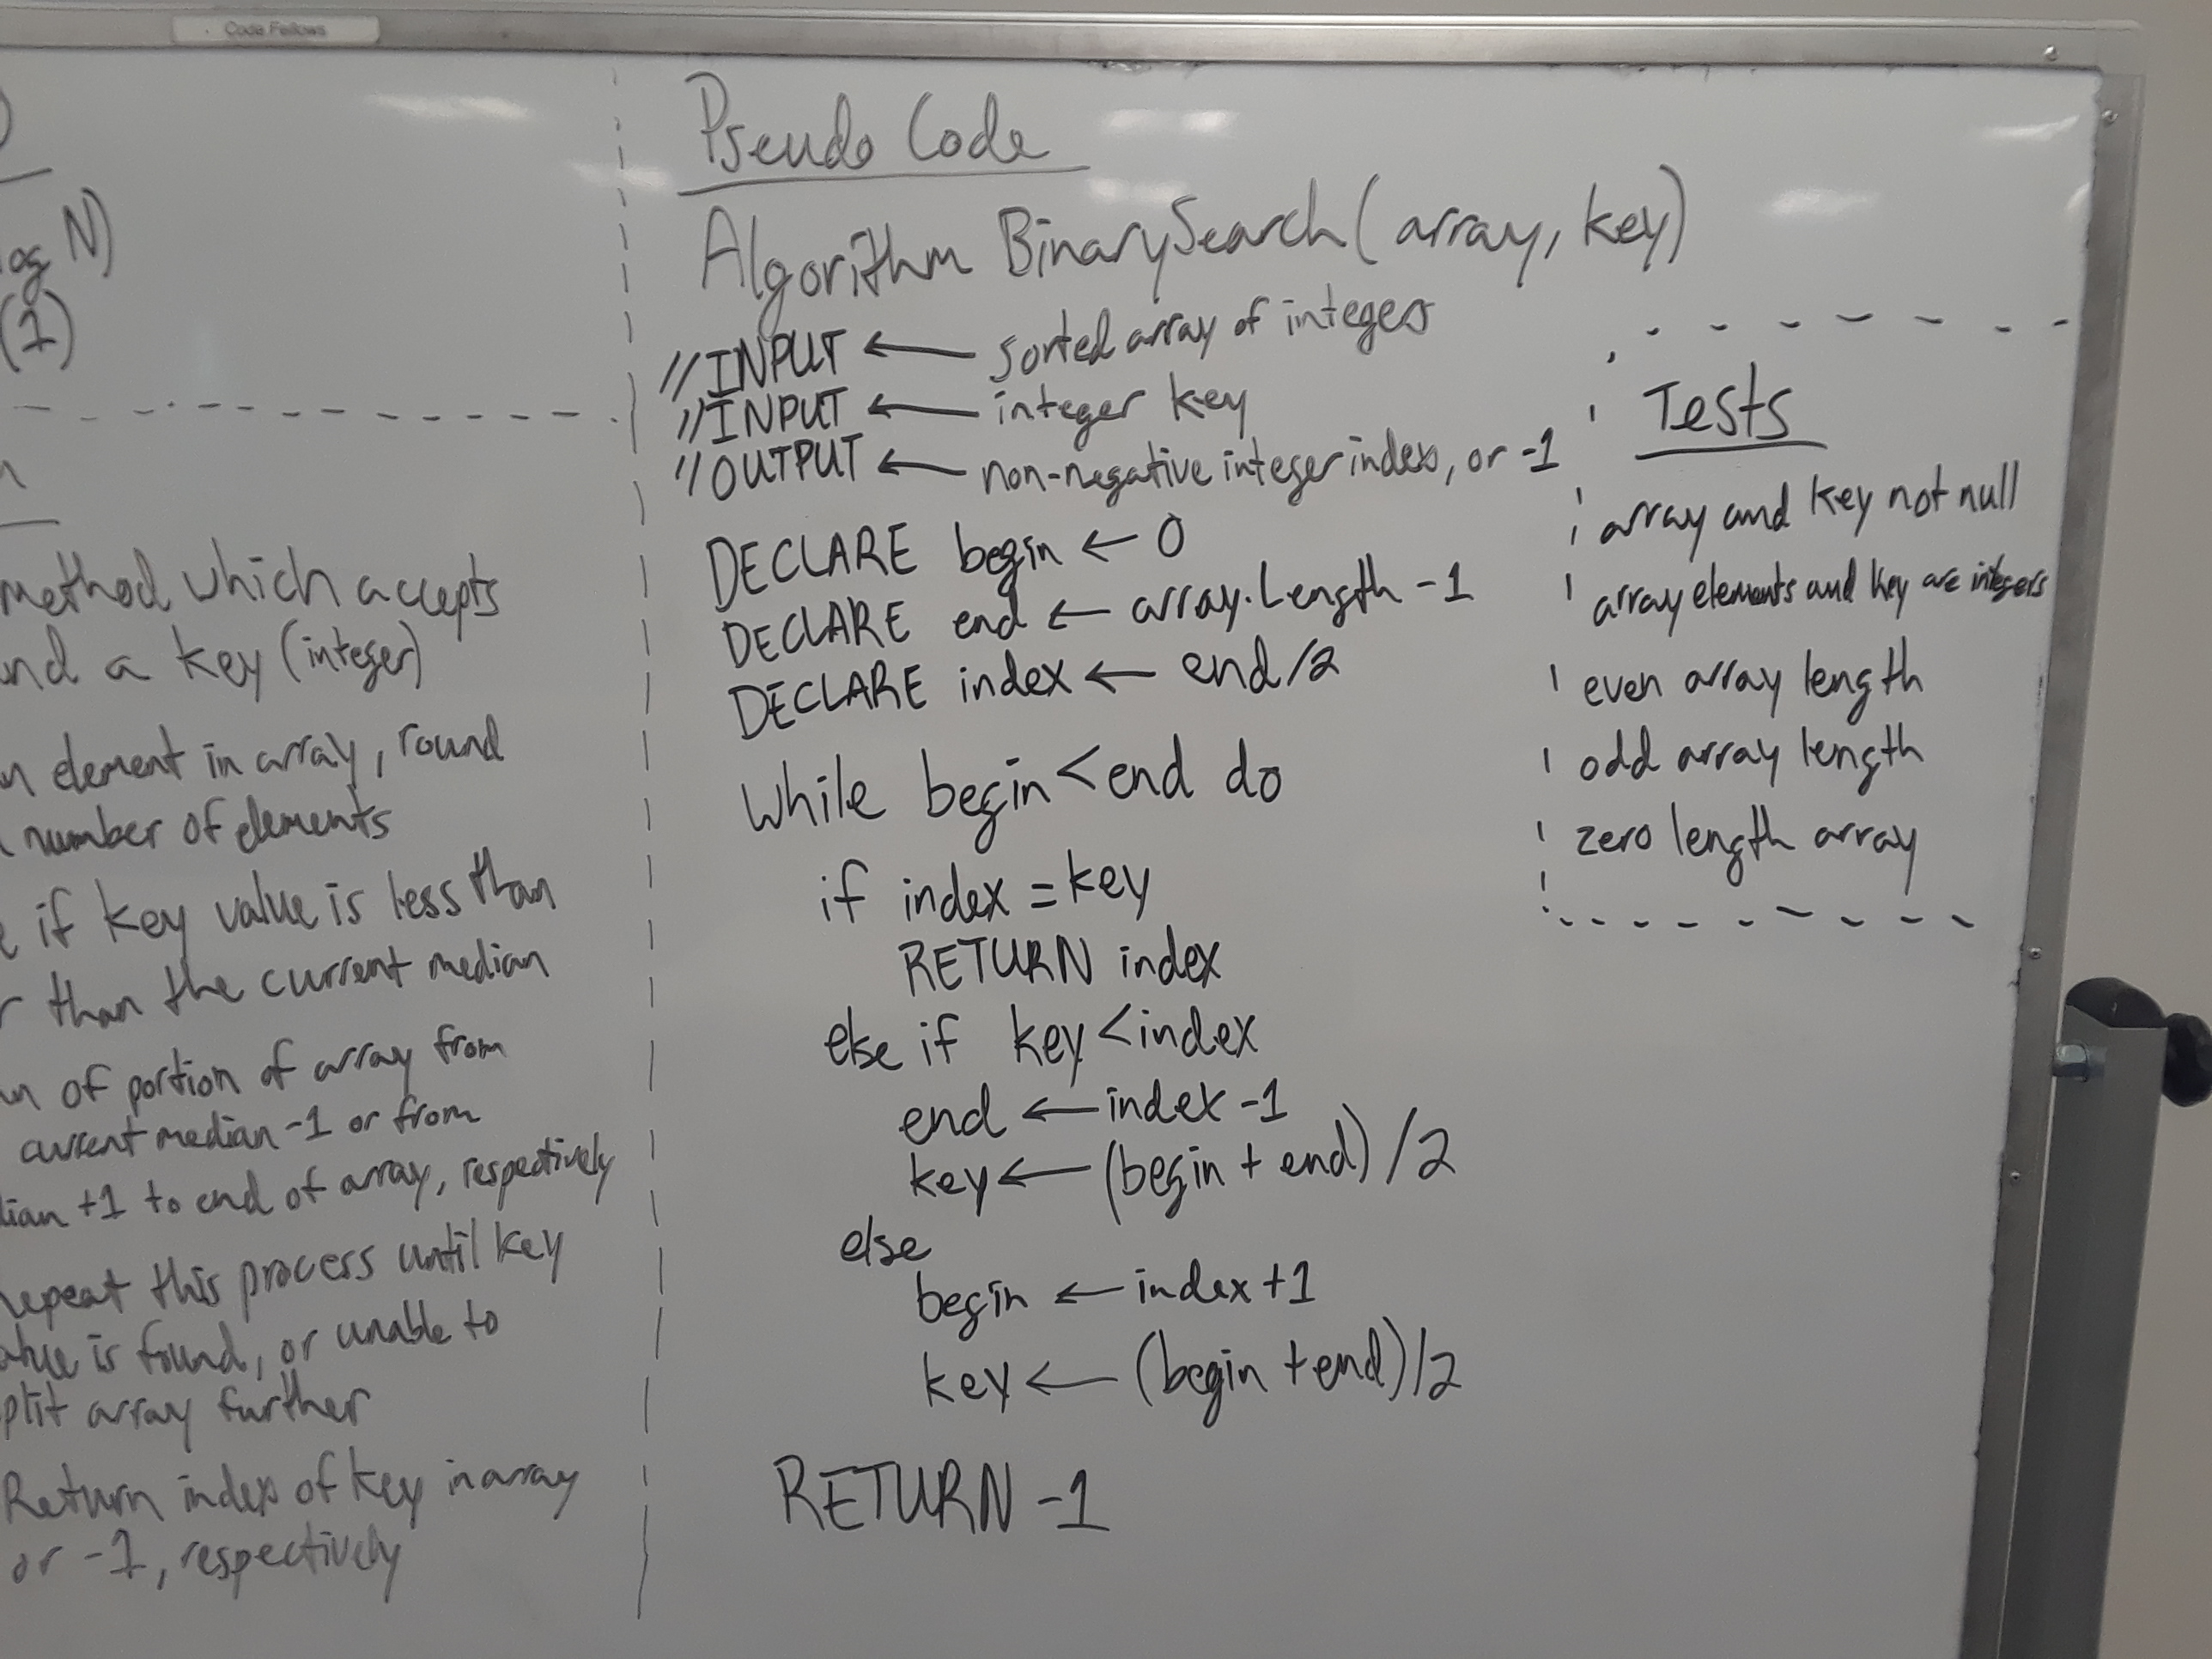 Code Fellows
og N)
(1)
method which accepts
nd a key (integer)
n element in array, round
number of elements
if key value is less than
r than the current median
n of portion of array from
current median -1 or from
dian +1 to end of array, respectively
repeat this process until key
alue is found, or unable to
plit array further
Return index of key in array
or -1, respectively
Pseudo Code
Algorithm BinarySearch(array, key)
//INPUT ← sorted array of integers
//INPUT ← integer key
//OUTPUT ← non-negative integer index, or -1
DECLARE begin ← 0
DECLARE end ← array.Length -1
DECLARE index ← end/2
While begin < end do
if index = key
RETURN index
else if key < index
end ← index -1
key ← (begin + end)/2
else
begin ← index +1
key ← (begin + end)/2
RETURN -1
Tests
array and key not null
array elements and key are integers
even array length
odd array length
zero length array